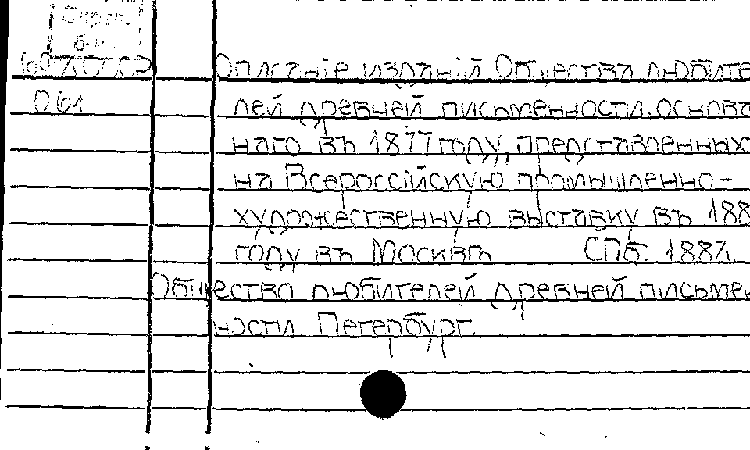 Описанiе изданiй Общества любите-
лей древней письменности, основан
наго въ 1877 году, представленных
на Всероссiйскую промышленно-
художественную выставку въ 188
году въ Москвѣ СПб. 1882.
Общество любителей древней письмен
ности. Петербург.